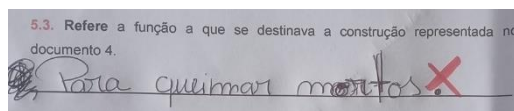 5.3. Refere a função a que se destinava a construção representada no
documento 4.
Para queimar mortos.